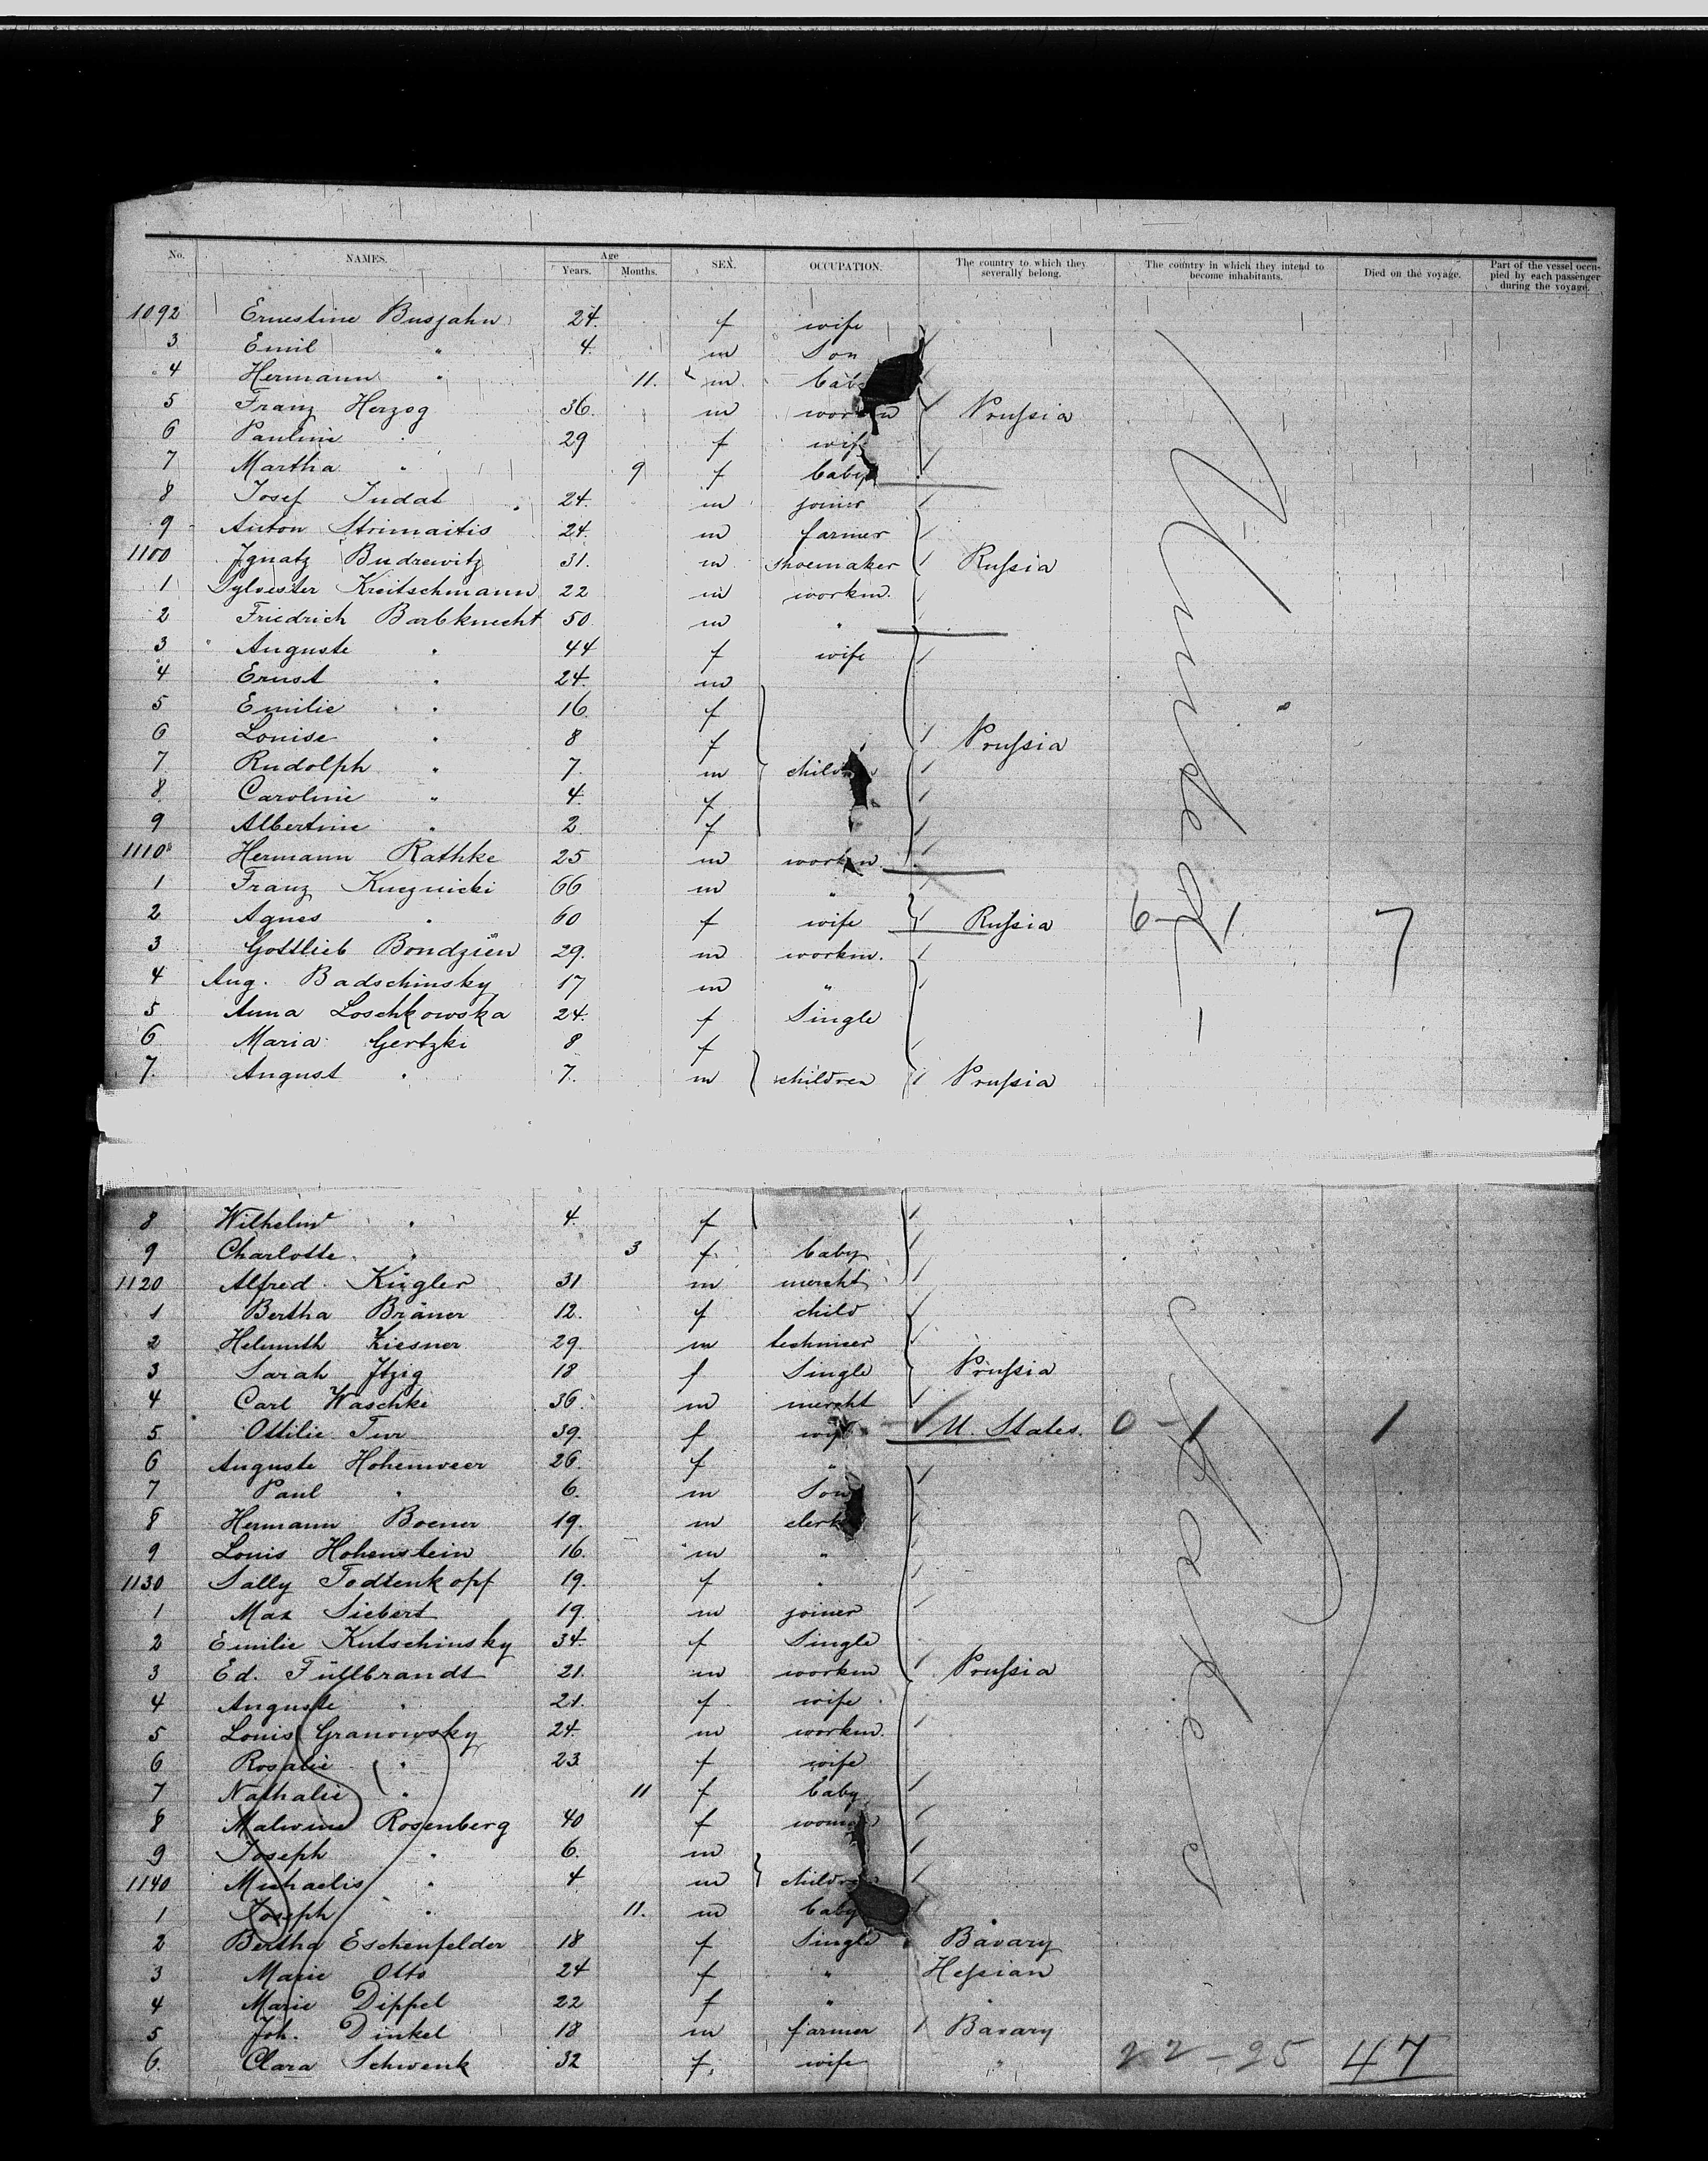 No. NAMES. Age Years. Months. SEX. OCCUPATION. The country to which they severally belong. The country in which they intend to become inhabitants. Died on the voyage. Part of the vessel occupied by each passenger during the voyage.
1092 Ernestine Busjahn 24. f wife
3 Emil " 4. m Son
4 Hermann " 11. m baby
5 Franz Herzog 36. m workm Prussia
6 Pauline " 29 f wife
7 Martha " 9 f baby
8 Josef Judat 24. m joiner
9 Anton Strimaitis 24. m farmer
1100 Ignatz Budrewitz 31. m shoemaker Russia
1 Sylvester Kreitschmann 22 m workm.
2 Friedrich Barbknecht 50 m "
3 Auguste " 44 f wife
4 Ernst " 24. m
5 Emilie " 16 f
6 Louise " 8 f Prussia
7 Rudolph " 7. m children
8 Caroline " 4. f
9 Albertine " 2 f
1110 Hermann Rathke 25 m workm.
1 Franz Kucznicki 66 m "
2 Agnes " 60 f wife Russia 6-1 7
3 Gottlieb Bondzien 29. m workm.
4 Aug. Badschinsky 17 m "
5 Anna Loschkowska 24. f Single
6 Maria Gertzki 8 f
7. August " 7. m children Prussia
8 Wilhelme " 4. f
9 Charlotte " 3 f. baby
1120 Alfred Kügler 31 m mercht
1 Bertha Bräuer 12. f child
2 Helmuth Kiesner 29. m techniser
3 Sarah Itzig 18 f Single Prussia
4 Carl Waschke 36. m mercht
5 Ottilie 39. f wife U. States. 0-1 1
6 Auguste Hohenweer 26. f "
7 Paul " 6. m Son
8 Hermann Boener 19. m clerk
9 Louis Hohenstein 16. m "
1130 Sally Todtenkopf 19. f "
1 Max Siebert 19. m joiner
2 Emilie Kutschinsky 34. f Single
3 Ed. Füllbrandt 21. m workm Prussia
4 Auguste " 21. f wife
5 Louis Granowsky 24. m workm.
6 Rosalie " 23 f wife
7 Nathalie " 11 f baby
8 Malwine Rosenberg 40 f woman
9 Joseph " 6. m
1140 Michaelis " 4 m children
1 Joseph " 11. m baby
2 Bertha Eschenfelder 18 f Single Bavary
3 Marie Otto 24 f " Hessian
4 Marie Dippel 22 f " "
5 Joh. Dinkel 18 m farmer Bavary
6. Clara Schwenk 32 f. wife " 22-25 47
United
States